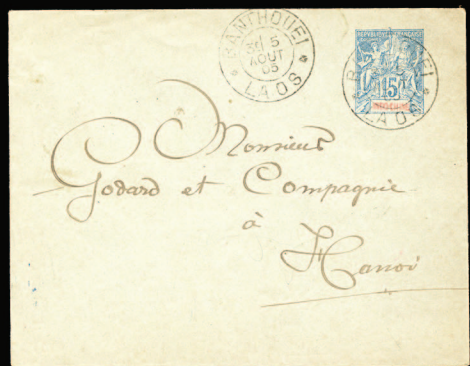 BANTHOUEI
3E 5
AOUT
05
* LAOS *
RÉPUBLIQUE FRANÇAISE
15
INDO-CHINE
LAOS
Monsieur
Godard et Compagnie
à
Hanoi